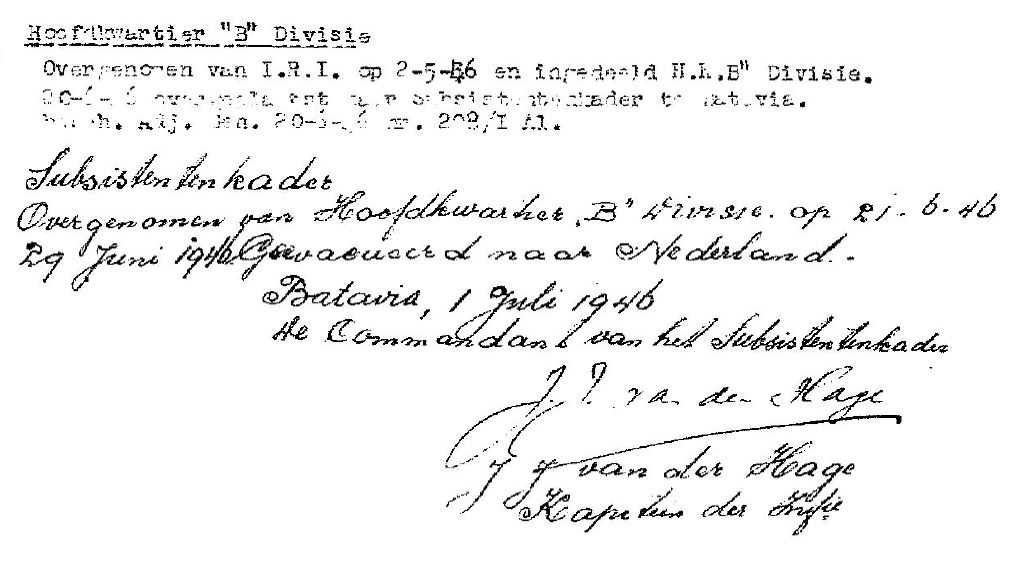 Hoofdkwartier "B" Divisie
Overgenomen van I.R.I. op 2-5-46 en ingedeeld H.K.B" Divisie.
subsistentenkader te Batavia.
208/I A1.
Subsistentenkader
Overgenomen van Hoofdkwartier „B" Divisie. op 21-6-46
29 Juni 1946 Geevacueerd naar Nederland.-
Batavia, 1 Juli 1946
De Commandant van het Subsistentenkader
J. J. van der Hage
J J van der Hage
Kapitein der Infie